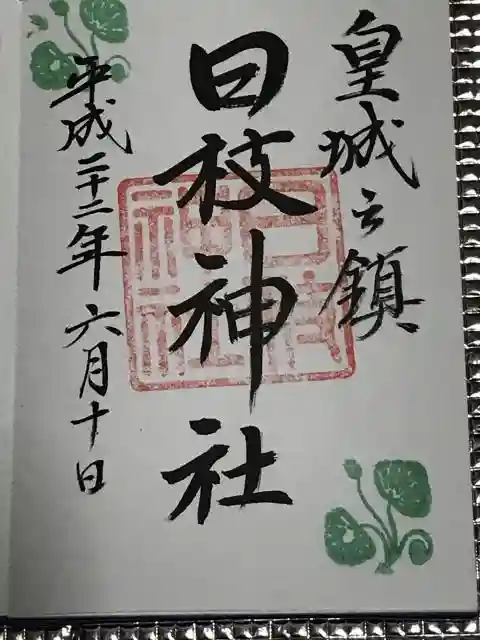 皇城之鎮
日枝神社
平成二十二年六月十日
日枝神社